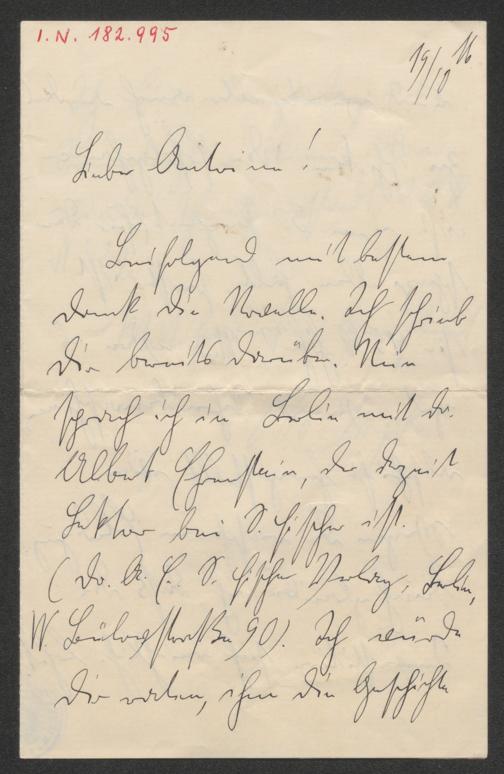 I.N. 182.995
19/10 16
Lieber Antoine!
Beifolgend mit bestem
Dank die Novelle. Ich schrieb
Dir bereits darüber. Nun
sprach ich in Berlin mit Dr.
Albert Ehrenstein, der derzeit
Lektor bei S. Fischer ist.
(Dr. A. E. S. Fischer Verlag, Berlin,
W. Bülowstraße 90). Ich würde
Dir raten, ihm die Geschichte